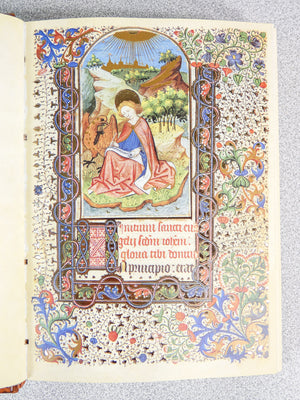 Initium sancti euã
gelij scdm iohem.
gloria tibi domin
In principio erat